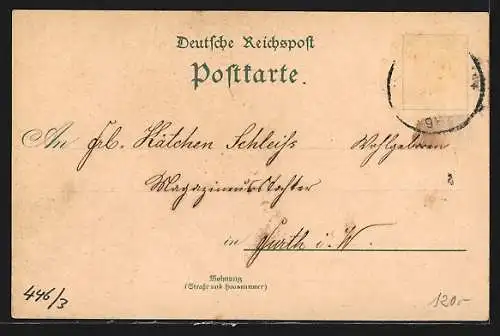 Deutsche Reichspost
Postkarte.
An Frl. Kätchen Schleiss Wohlgeboren
Magazineurstochter
in Furth i. W.
Wohnung
(Straße und Hausnummer)
446/3
120.-